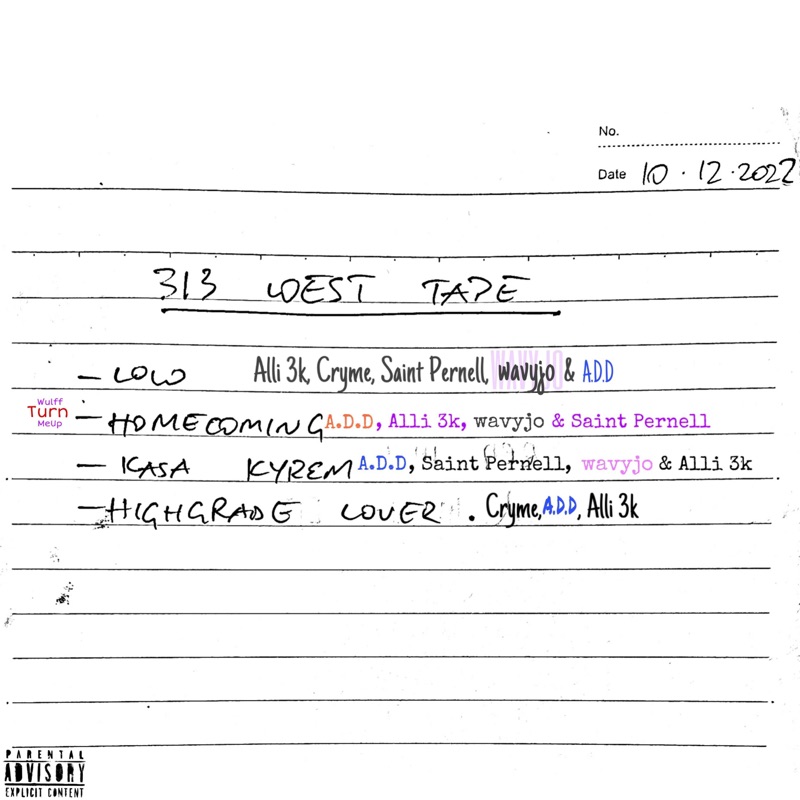 No.
Date 10.12.2022
313 WEST TAPE
- LOLO Alli 3k, Cryme, Saint Pernell, wavyjo & A.D.D
Wulff
Turn
MeUp
- HOMECOMING A.D.D, Alli 3k, wavyjo & Saint Pernell
- KASA KYREM A.D.D, Saint Pernell, wavyjo & Alli 3k
- HIGHGRADE LOVER. Cryme, A.D.D, Alli 3k
PARENTAL
ADVISORY
EXPLICIT CONTENT